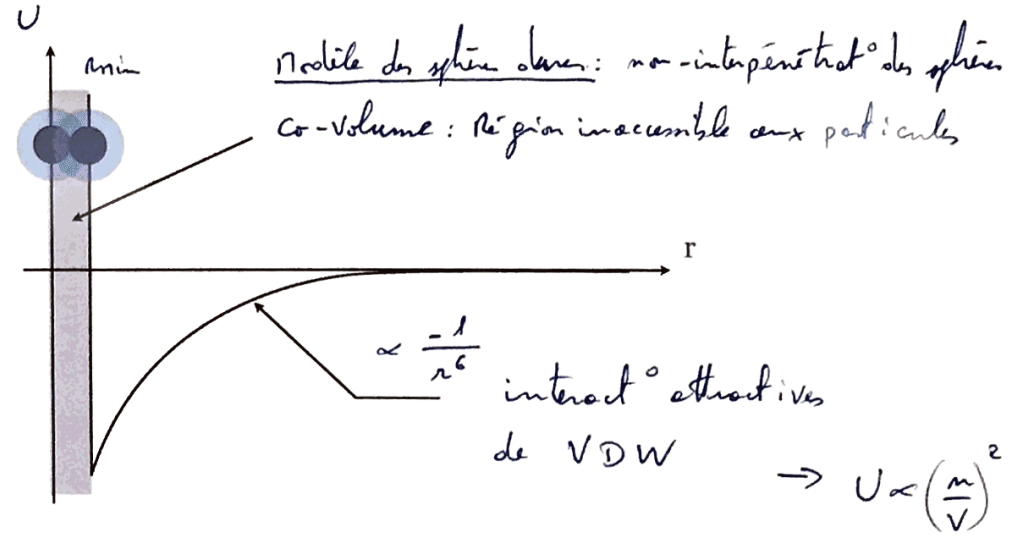 U
rmin
Modèle des sphères dures : non-interpénétrat° des sphères
Co-Volume : Région inaccessible aux particules
r
∝ -1/r⁶
interact° attractives
de VDW
→ U ∝ (n/V)²